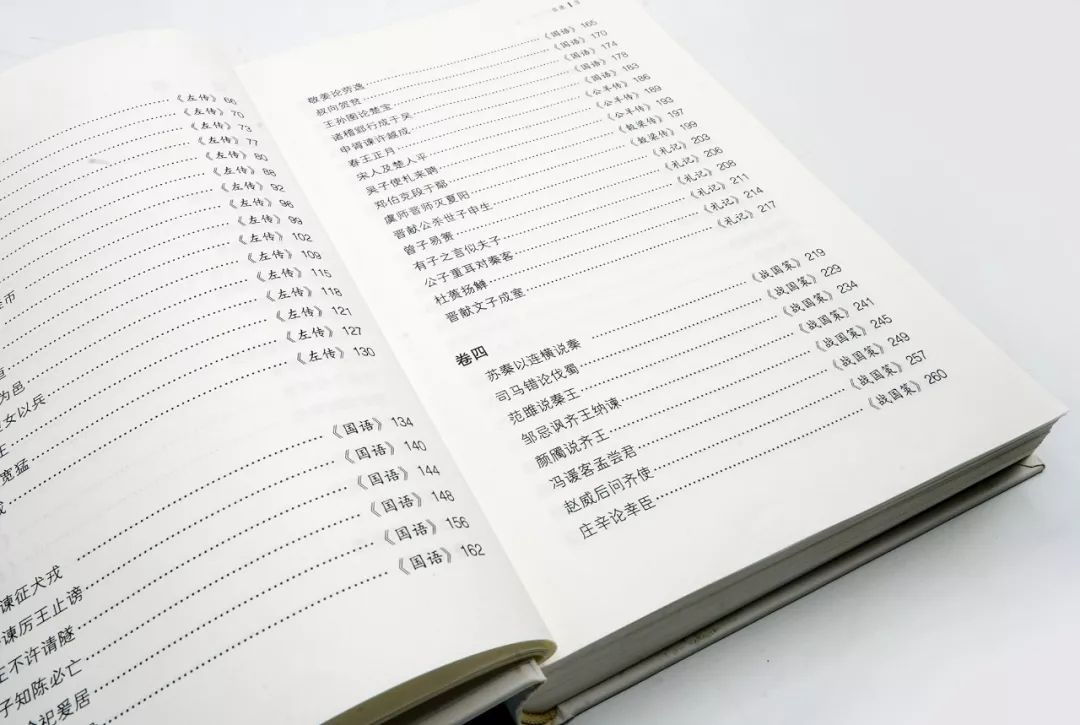 《左传》66
《左传》70
《左传》73
《左传》77
《左传》80
《左传》88
《左传》92
币 《左传》96
《左传》99
《左传》102
垣 《左传》109
为邑 《左传》115
女以兵 《左传》118
王 《左传》121
宽猛 《左传》127
成 《左传》130
谏征犬戎 《国语》134
谏厉王止谤 《国语》140
王不许请隧 《国语》144
子知陈必亡 《国语》148
祀爰居 《国语》156
《国语》162
敬姜论劳逸 《国语》165
叔向贺贫 《国语》170
王孙圉论楚宝 《国语》174
诸稽郢行成于吴 《国语》178
申胥谏许越成 《国语》183
春王正月 《公羊传》186
宋人及楚人平 《公羊传》189
吴子使札来聘 《公羊传》193
郑伯克段于鄢 《穀梁传》197
虞师晋师灭夏阳 《穀梁传》199
晋献公杀世子申生 《礼记》203
曾子易箦 《礼记》206
有子之言似夫子 《礼记》208
公子重耳对秦客 《礼记》211
杜蒉扬觯 《礼记》214
晋献文子成室 《礼记》217
卷四
苏秦以连横说秦 《战国策》219
司马错论伐蜀 《战国策》229
范雎说秦王 《战国策》234
邹忌讽齐王纳谏 《战国策》241
颜斶说齐王 《战国策》245
冯谖客孟尝君 《战国策》249
赵威后问齐使 《战国策》257
庄辛论幸臣 《战国策》260